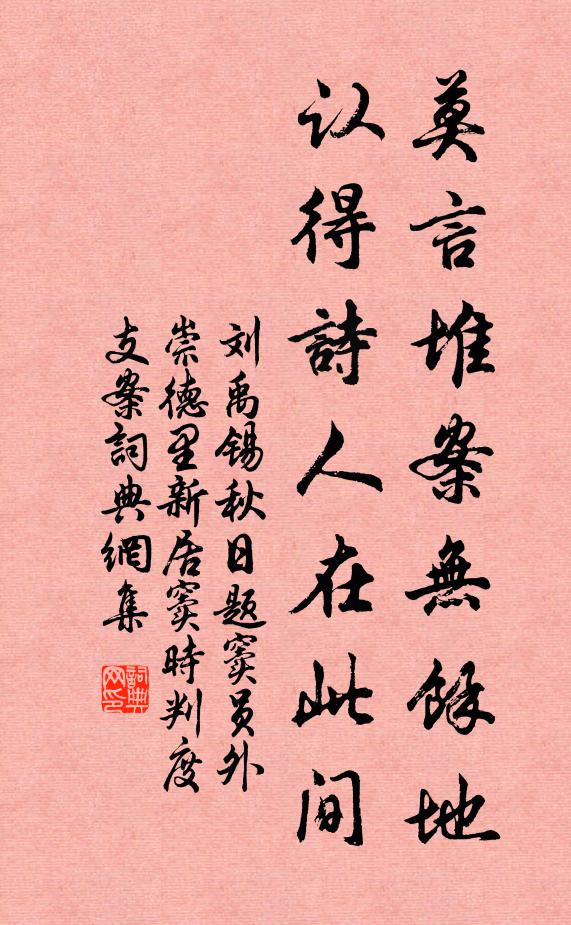 莫言堆案無餘地
认得詩人在此间
刘禹锡秋日题窦员外
崇德里新居窦時判度
支案詞典網集
詞典网印